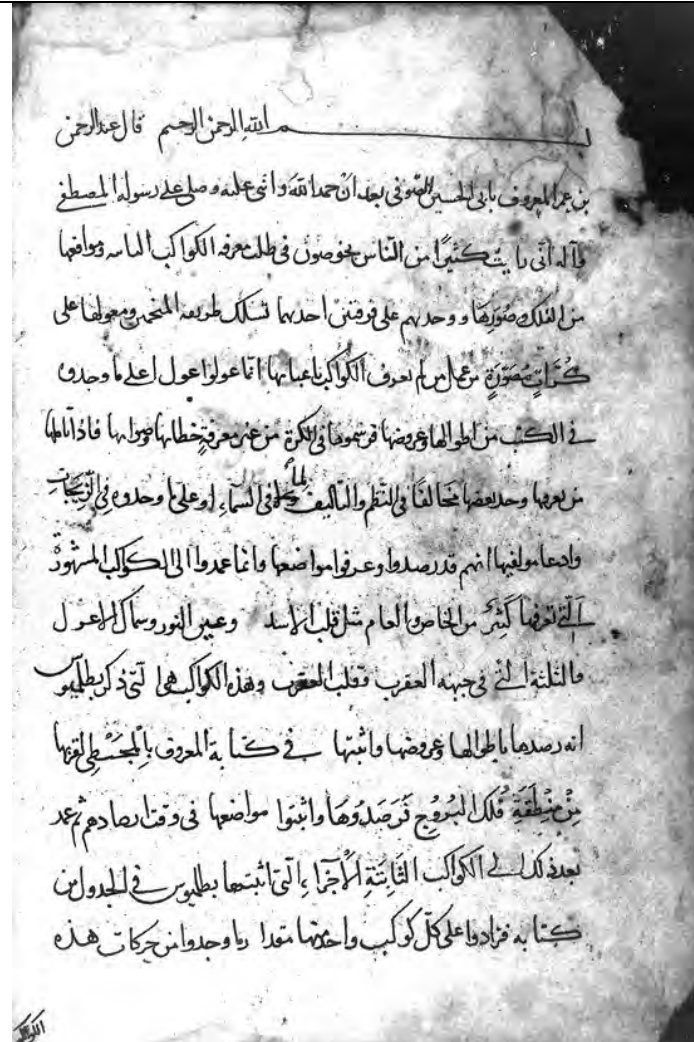 بسم الله الرحمن الرحيم قال عبد الرحمن
بن عمر المعروف بابي الحسين الصوفي بعد ان حمد الله واثنى عليه وصلى على رسوله المصطفى
وآله انى رايت كثيرًا من الناس يخوضون فى طلب معرفه الكواكب الثابته ومواقعها
من الفلك وصورها ووجدتهم على فرقتين احديهما تسلك طريقه المنجمين ومعولها على
كُرَاتٍ مُصَوَّرَةٍ من عمل من لم يعرف الكواكب باعيانها انما عولوا على ما وجدوه
فى الكتب من اطوالها وعروضها فرسموها فى الكرة من غير معرفة خطائها وصوابها فاذا تاملها
من يعرفها وجد بعضها مخالفًا فى النظم والتاليف لما فى السماء او على ما وجدوه فى الزيجات
وادعا مولفيها انهم قد رصدوا وعرفوا مواضعها وانما عمدوا الى الكواكب المشهورة
التى تعرفها كثير من الخاص والعام مثل قلب الاسد وعين الثور وسماك الاعزل
والثلثة التى فى جبهه العقرب وقلب العقرب وهذه الكواكب هى التى ذكر بطلميوس
انه رصدها باطوالها وعروضها واثبتها فى كتابه المعروف بالمجسطى لقربها
مِنْ مِنْطَقَةِ فَلَك البُرُوج فَرَصَدُوهَا واثبتوا مواضعها فى وقت ارصادهم ثم عمد
بعد ذلك الى الكواكب الثابتة الأخر التى اثبتها بطلميوس فى الجدول من
كتابه فزادوا على كل كوكب واحد منها مقدار ما وجدوا من حركات هذه
الكواكب